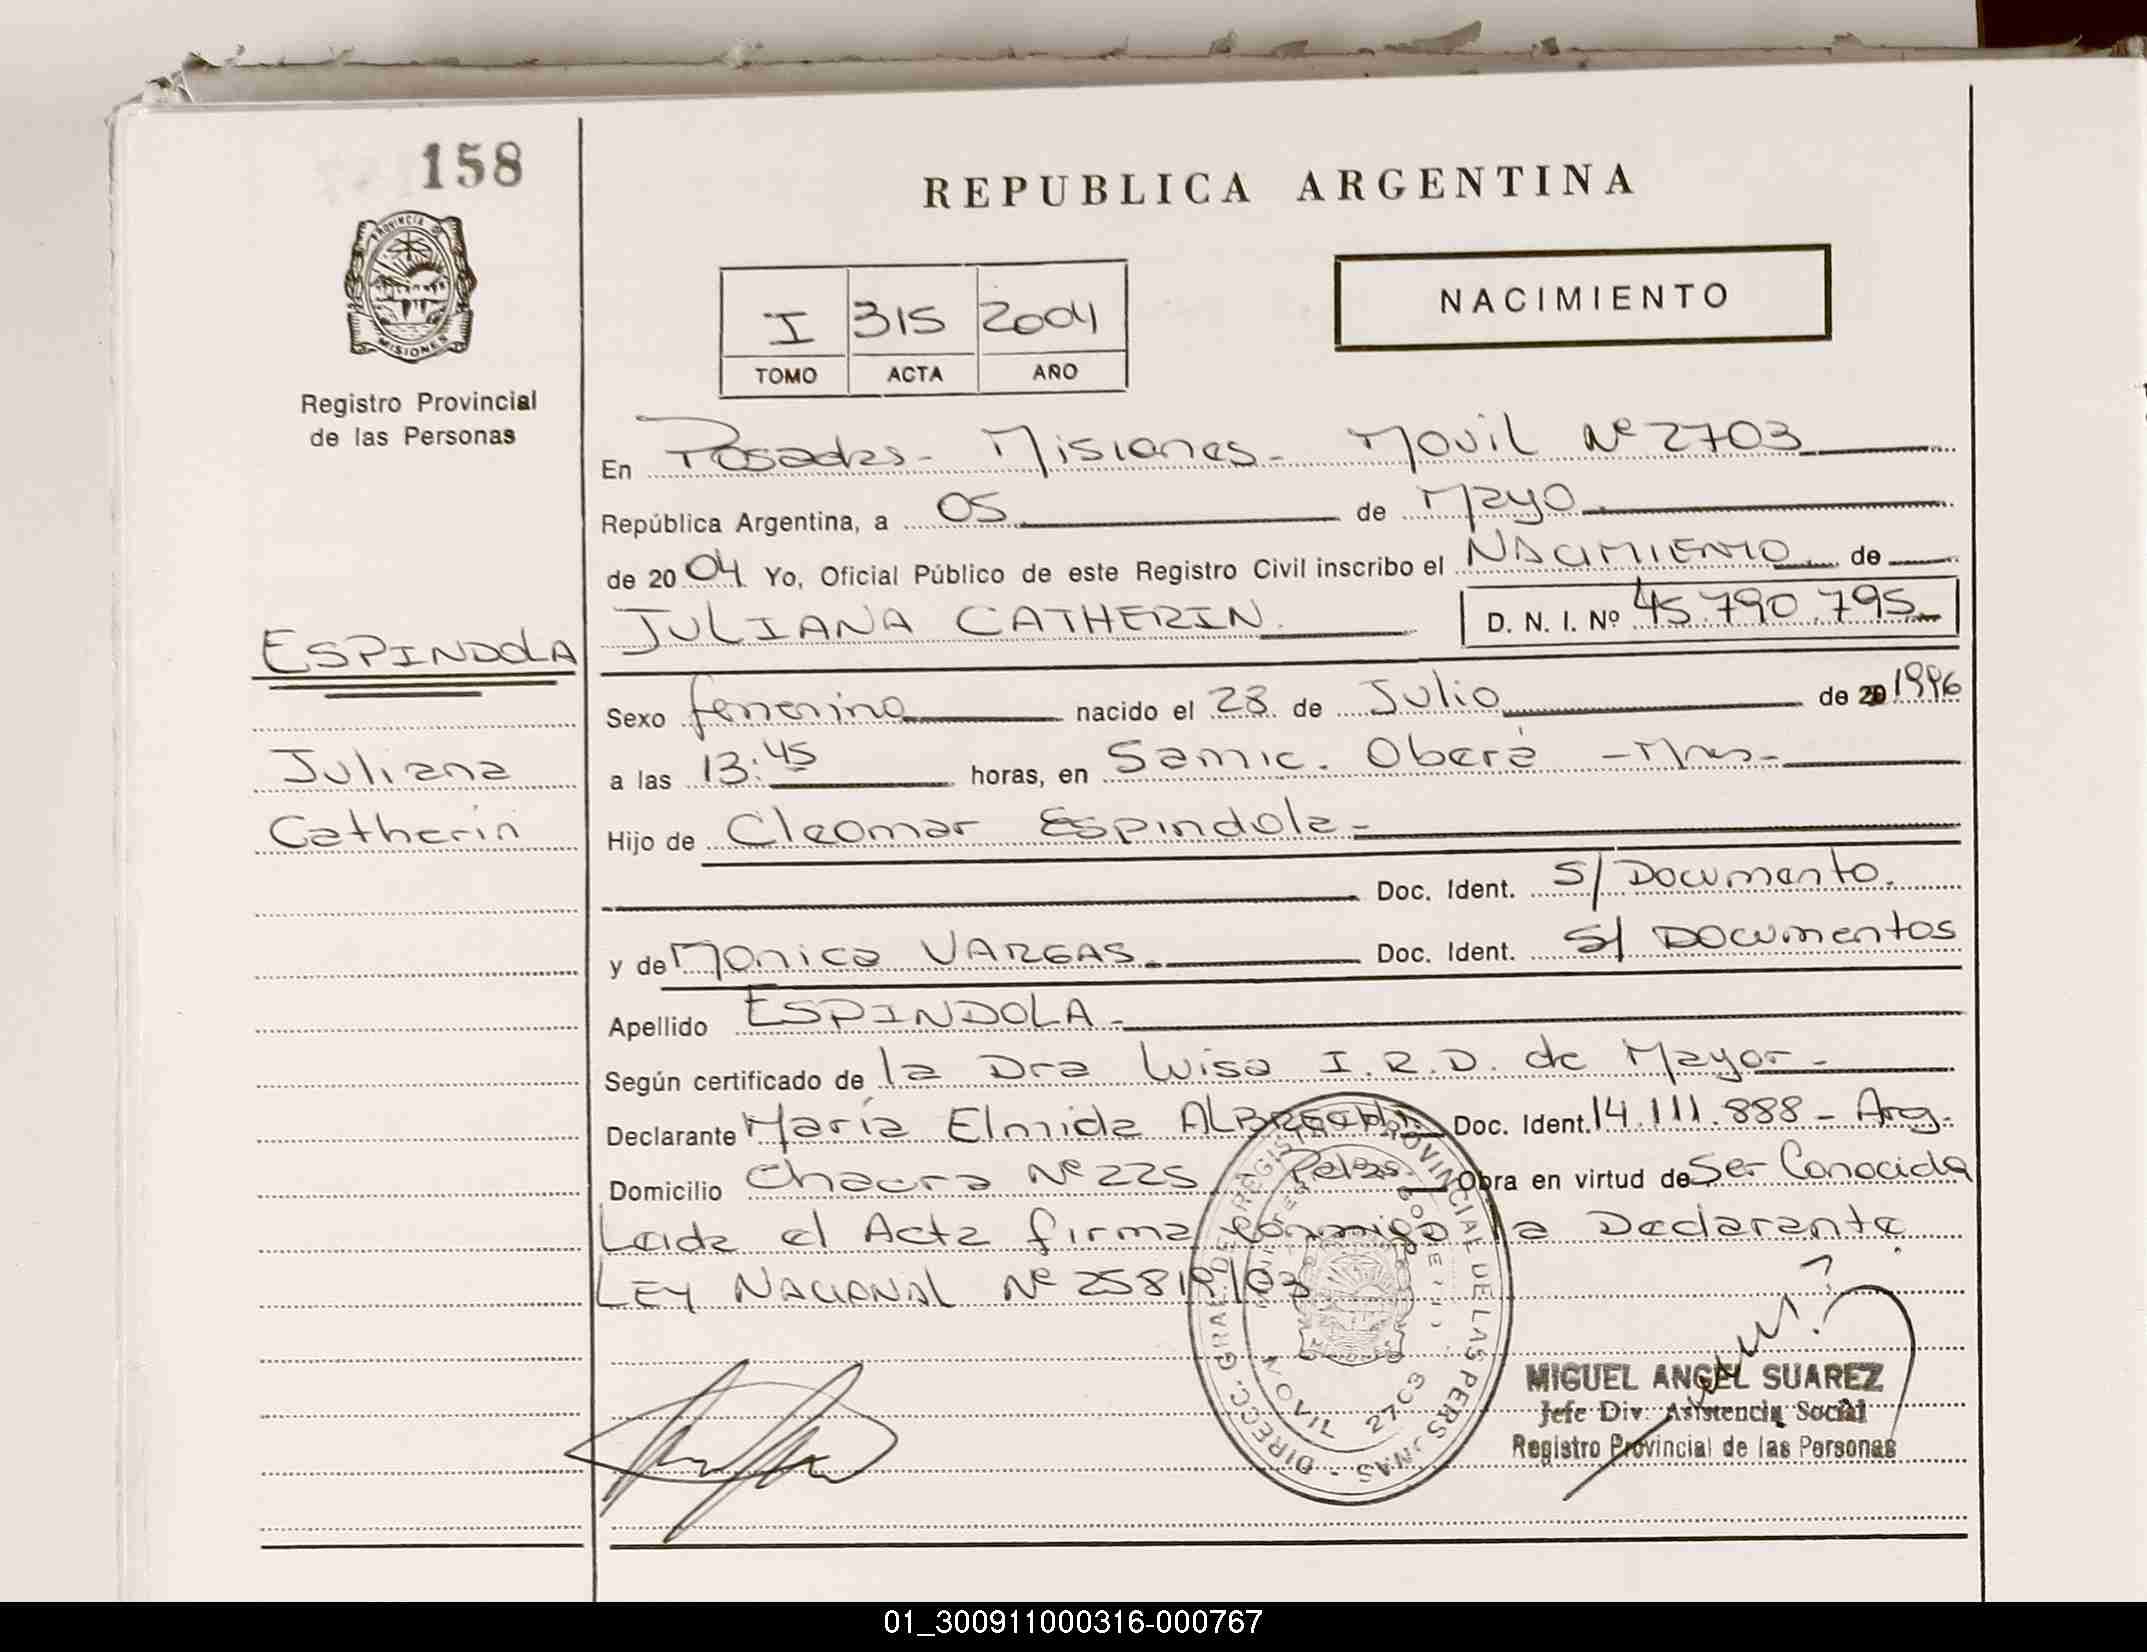 158
PROVINCIA DE
MISIONES
Registro Provincial
de las Personas
ESPINDOLA
Juliana
Catherin
REPUBLICA ARGENTINA
I 315 2004
TOMO ACTA AÑO
NACIMIENTO
En Posadas - Misiones - Movil Nº 2703
República Argentina, a 05 de Mayo
de 2004 Yo, Oficial Público de este Registro Civil inscribo el NACIMIENTO de
JULIANA CATHERIN. D. N. I. Nº 45.790.795
Sexo femenino nacido el 28 de Julio de 20 1996
a las 13:45 horas, en Samic. Oberá - Mnes -
Hijo de Cleomar Espindola -
Doc. Ident. S/ Documento.
y de Monica VARGAS Doc. Ident. S/ Documentos
Apellido ESPINDOLA -
Según certificado de la Dra Luisa I.R.D. de Mayor -
Declarante María Elmida Doc. Ident. 14.111.888 - Arg.
Domicilio Chacra Nº 225 Obra en virtud de Ser Conocida
Leida el Acta firma conmigo la Declarante
LEY NACIONAL Nº 25819/03
DIRECC. GRAL. DE REGISTRO PROVINCIAL DE LAS PERSONAS
MOVIL 2703
MIGUEL ANGEL SUAREZ
Jefe Div. Asistencia Social
Registro Provincial de las Personas
01_300911000316-000767